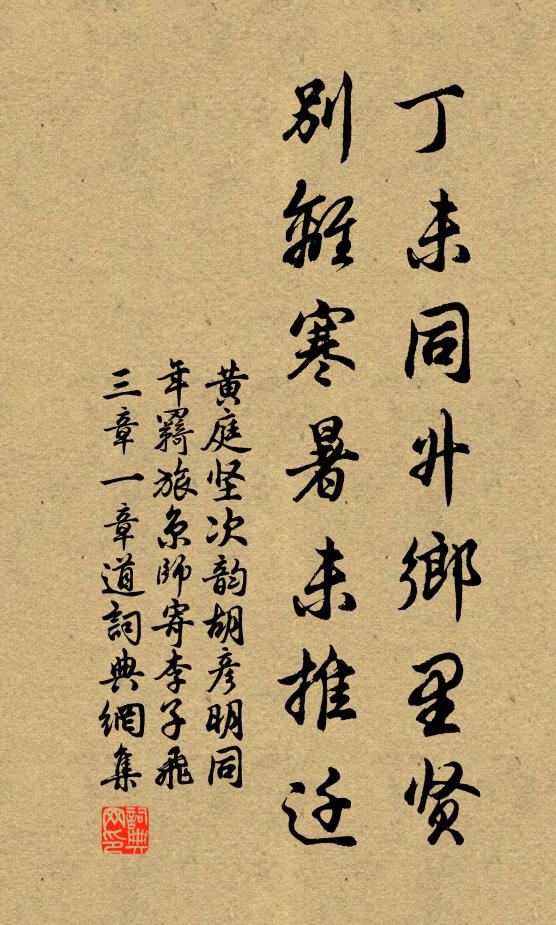 丁未同升鄉里贤
別離寒暑未推迁
黄庭坚次韵胡彦明同
年羇旅京师寄李子飛
三章一章道詞典網集
詞典网印